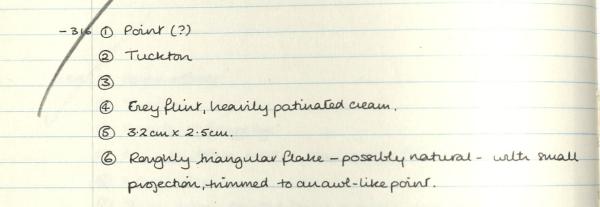 -316 ① Point (?)
② Tuckton
③
④ Grey flint, heavily patinated cream.
⑤ 3.2cm x 2.5cm.
⑥ Roughly triangular flake - possibly natural - with small
projection, trimmed to an awl-like point.